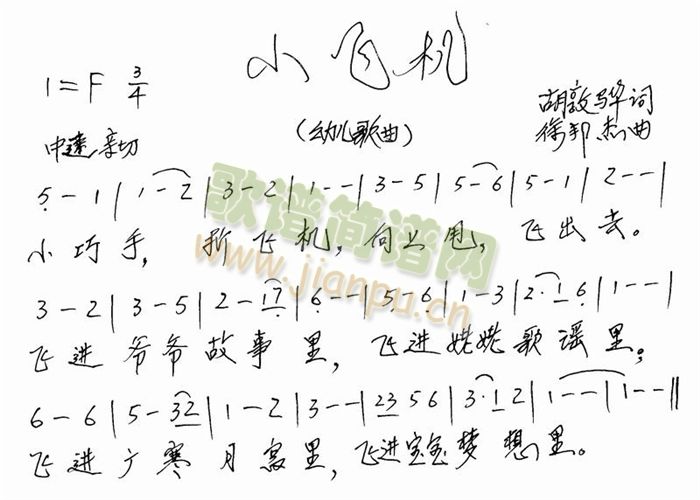 小飞机
1=F 3/4
(幼儿歌曲)
胡敦骅词
徐邦杰曲
中速 亲切
5 - 1 | 1 - 2 | 3 - 2 | 1 - - | 3 - 5 | 5 - 6 | 5 - 1 | 2 - - |
小巧手, 折飞机, 向上甩, 飞出去。
3 - 2 | 3 - 5 | 2 - 17 | 6 - - | 5 - 6 | 1 - 3 | 2· 1 6 | 1 - - |
飞进爷爷故事里, 飞进姥姥歌谣里;
6 - 6 | 5 - 32 | 1 - 2 | 3 - - | 23 5 6 | 3· 1 2 | 1 - - | 1 - - ||
飞进广寒月宫里, 飞进宝宝梦想里。
歌谱简谱网
www.jianpu.cn